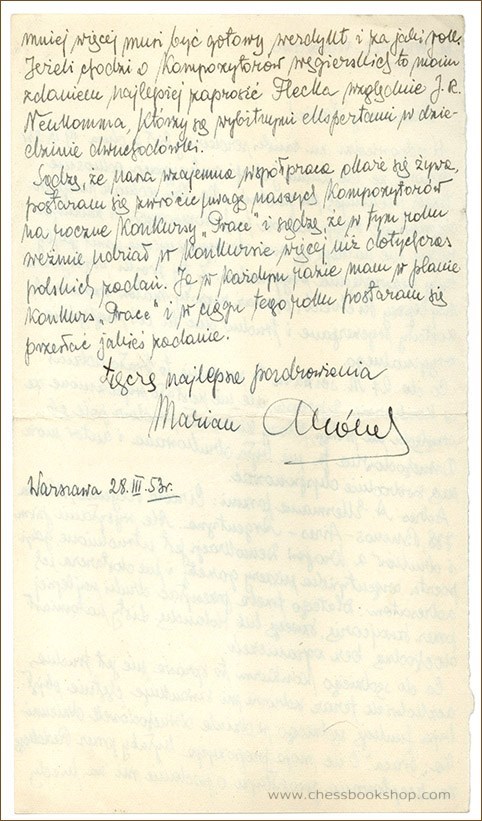 mniej więcej musi być gotowy werdykt i za jaki
Jeżeli chodzi o Kompozytorów węgierskich to moim
zdaniem najlepiej zaprosić Flecka względnie J. R.
Neukomma, którzy są wybitnymi ekspertami w dzie-
dzinie dwuchodówki.
Sądzę, że nasza wzajemna współpraca okaże się żywa,
postaram się zwrócić uwagę naszych Kompozytorów
na roczne Konkursy „Prace" i sądzę, że w tym roku
weźmie udział w Konkursie więcej niż dotychczas
polskich zadań. Ja w każdym razie mam w planie
Konkurs „Prace" i w ciągu tego roku postaram się
przesłać jakieś zadanie.
Łączę najlepsze pozdrowienia
Marian
Warszawa 28.III.53r.
www.chessbookshop.com